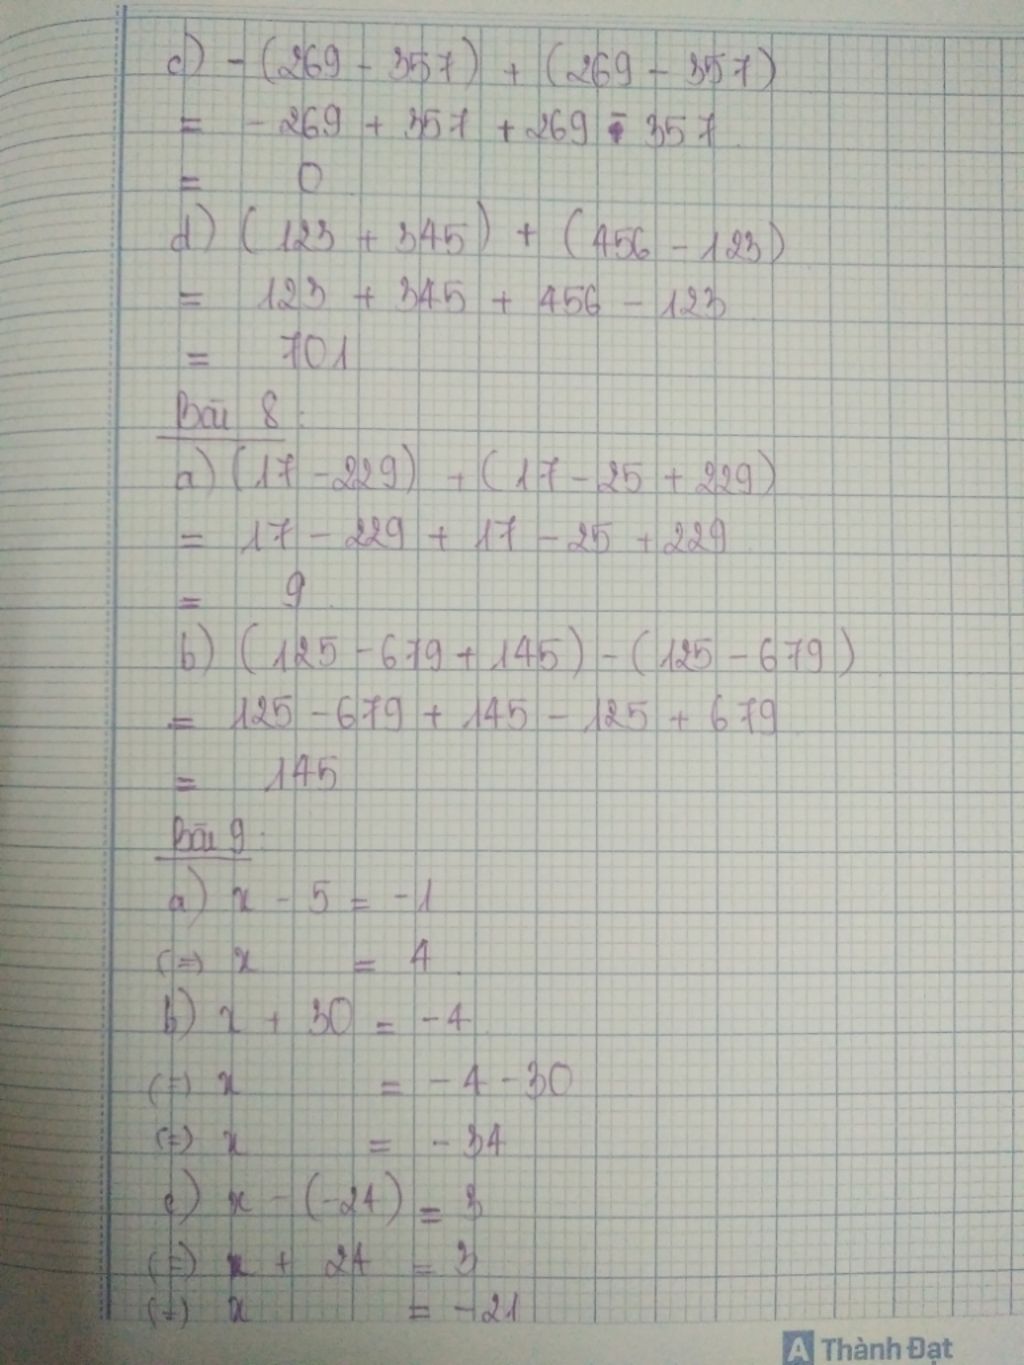 c) - (269 - 357) + (269 - 357)
= - 269 + 357 + 269 - 357
= 0
d) (123 + 345) + (456 - 123)
= 123 + 345 + 456 - 123
= 701
Bài 8:
a) (17 - 229) + (17 - 25 + 229)
= 17 - 229 + 17 - 25 + 229
= 9
b) (125 - 679 + 145) - (125 - 679)
= 125 - 679 + 145 - 125 + 679
= 145
Bài 9:
a) x - 5 = -1
(=) x = 4
b) x + 30 = -4
(=) x = -4 - 30
(=) x = -34
c) x - (-24) = 3
(=) x + 24 = 3
(=) x = -21
A Thành Đạt